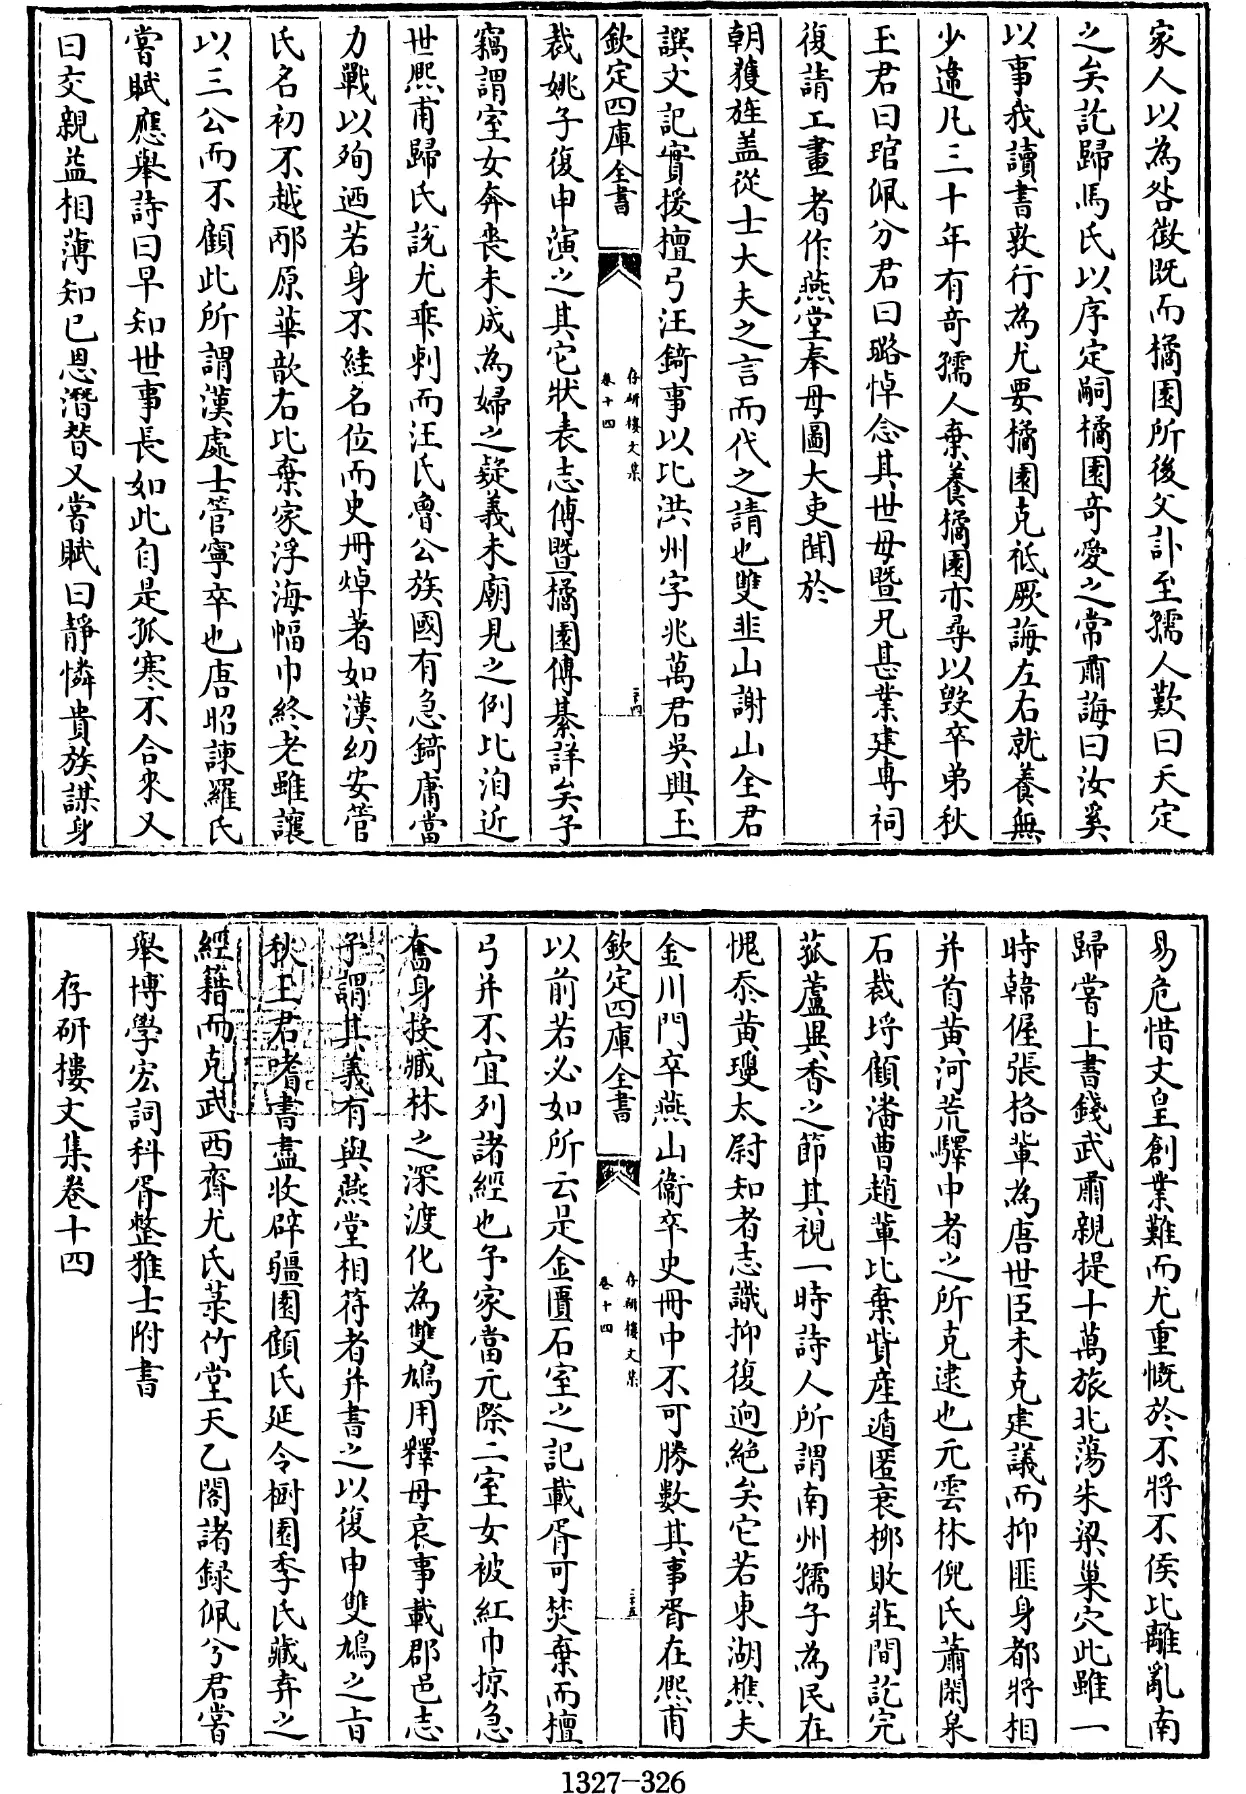 家人以為咎徵既而橘園所後父訃至孺人歎曰天定
之矣訖歸馬氏以序定嗣橘園奇愛之常肅誨曰汝奚
以事我讀書敦行為尤要橘園克祗厥誨左右就養無
少違凡三十年有奇孺人棄養橘園亦尋以毀卒弟秋
玉君曰琯佩兮君曰璐悼念其世母暨兄甚業建專祠
復請工畫者作燕堂奉母圖大吏聞於
朝獲旌盖從士大夫之言而代之請也雙韭山謝山全君
譔文記實援檀弓汪錡事以比洪州字兆萬君吳興玉
欽定四庫全書
存研樓文集
卷十四
二十四
裁姚子復申演之其它狀表志傳暨橘園傳綦詳矣予
竊謂室女奔喪未成為婦之疑義未廟見之例比洎近
世熙甫歸氏說尤乖剌而汪氏魯公族國有急錡庸當
力戰以殉迺若身不絓名位而史冊焯著如漢幼安管
氏名初不越邴原華歆右比棄家浮海幅巾終老雖讓
以三公而不顧此所謂漢處士管寧卒也唐昭諫羅氏
嘗賦應舉詩曰早知世事長如此自是孤寒不合來又
曰交親益相薄知己恩潛替又嘗賦曰靜憐貴族謀身
易危惜文皇創業難而尤重慨於不將不侯比離亂南
歸嘗上書錢武肅親提十萬旅北蕩朱梁巢穴此雖一
時韓偓張格輩為唐世臣未克建議而抑匪身都將相
并首黃河荒驛中者之所克逮也元雲林倪氏蕭閑臬
石裁埒顧潘曹趙輩比棄貲産遁匿衰柳敗莊間訖完
菰蘆異香之節其視一時詩人所謂南州孺子為民在
愧忝黃瓊太尉知者志識抑復逈絶矣它若東湖樵夫
金川門卒燕山衞卒史冊中不可勝數其事胥在熙甫
欽定四庫全書
存研樓文集
卷十四
二十五
以前若必如所云是金匱石室之記載胥可焚棄而檀
弓并不宜列諸經也予家當元際二室女被紅巾掠急
奮身投臧林之深渡化為雙鳩用釋母哀事載郡邑志
予謂其義有與燕堂相符者并書之以復申雙鳩之旨
秋玉君嗜書盡收辟疆園顧氏延令樹園季氏藏弆之
經籍而克武西齋尤氏菉竹堂天乙閣諸錄佩兮君嘗
舉博學宏詞科胥整雅士附書
存研樓文集卷十四
1327-326